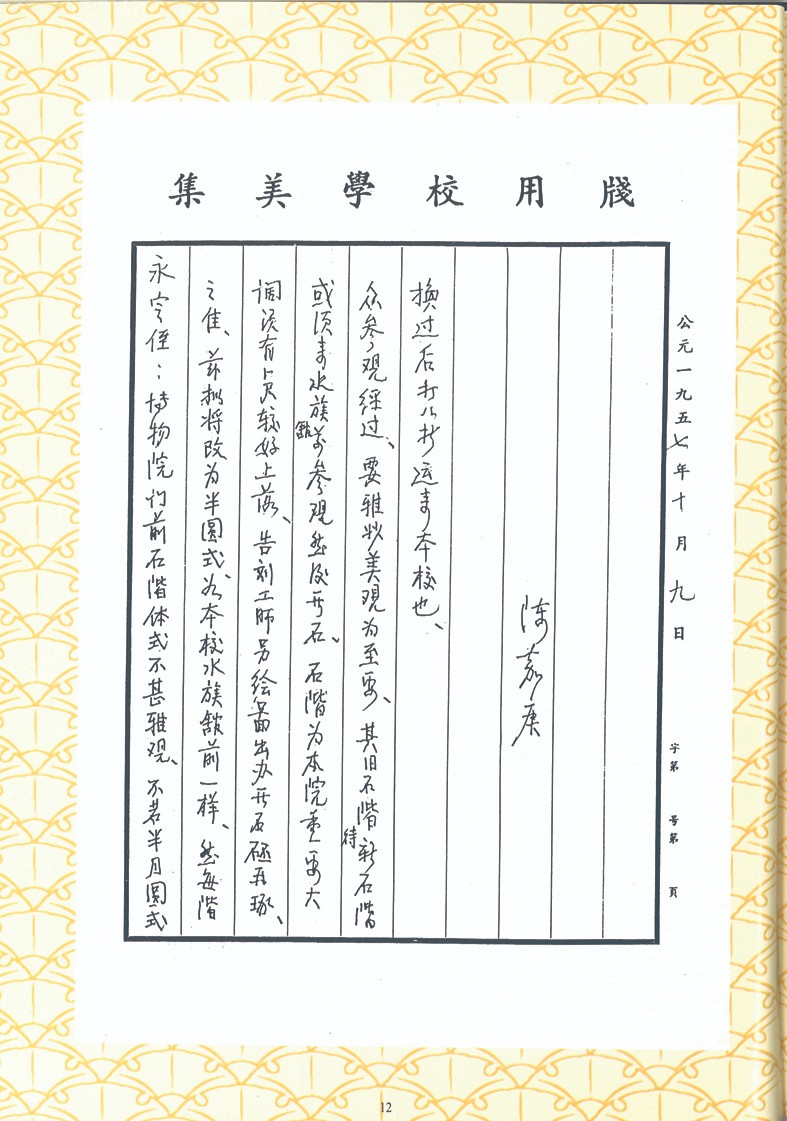 集美學校用牋
永定侄：博物院门前石階体式不甚雅观、不若半月圓式
之佳、兹拟将改为半圓式、如本校水族舘前一样、然每階
阔须有尺较好上落、告刻工师另绘圖出办开石砥再琢、
或须来水族舘前参观然后开石。石階为本院重要大
众参观经过、要雅妙美观为至要、其旧石階待新石階
換过后打い抄运来本校也、
陈嘉庚
公元一九五七年十月九日
字第 号第 頁
12